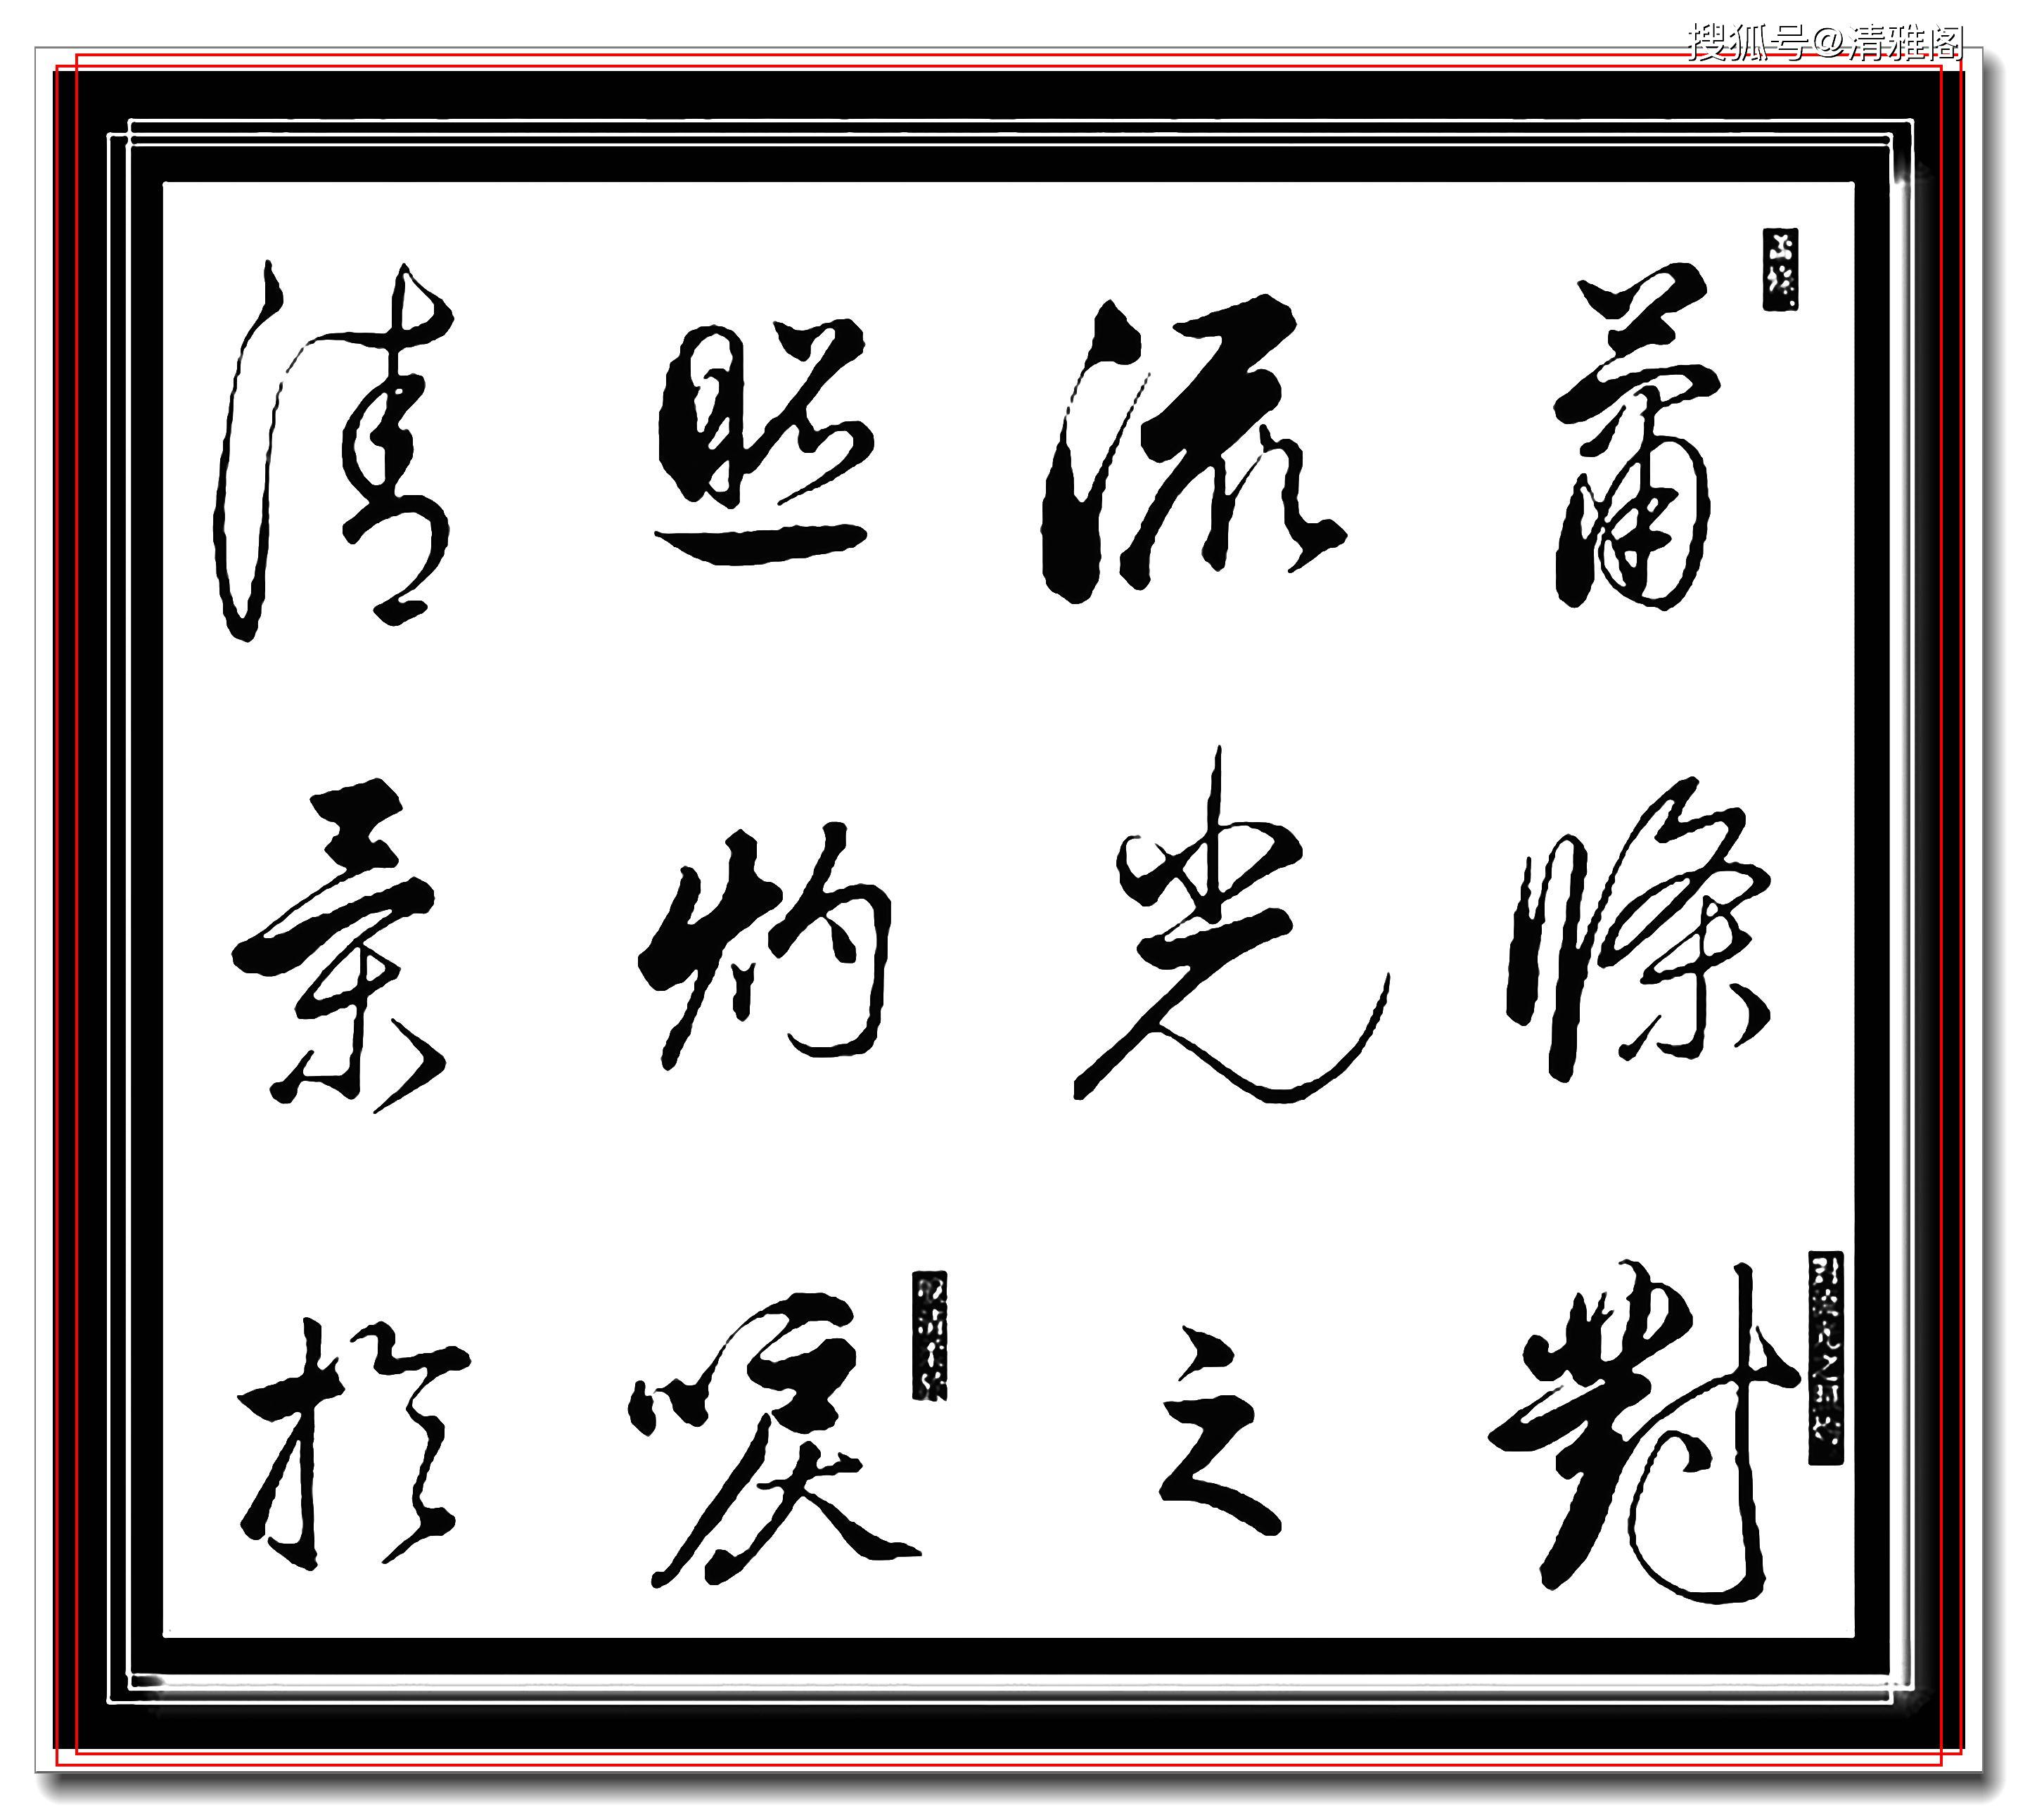 搜狐号@清雅阁
蕭條對
流光之
照灼唳
清景於